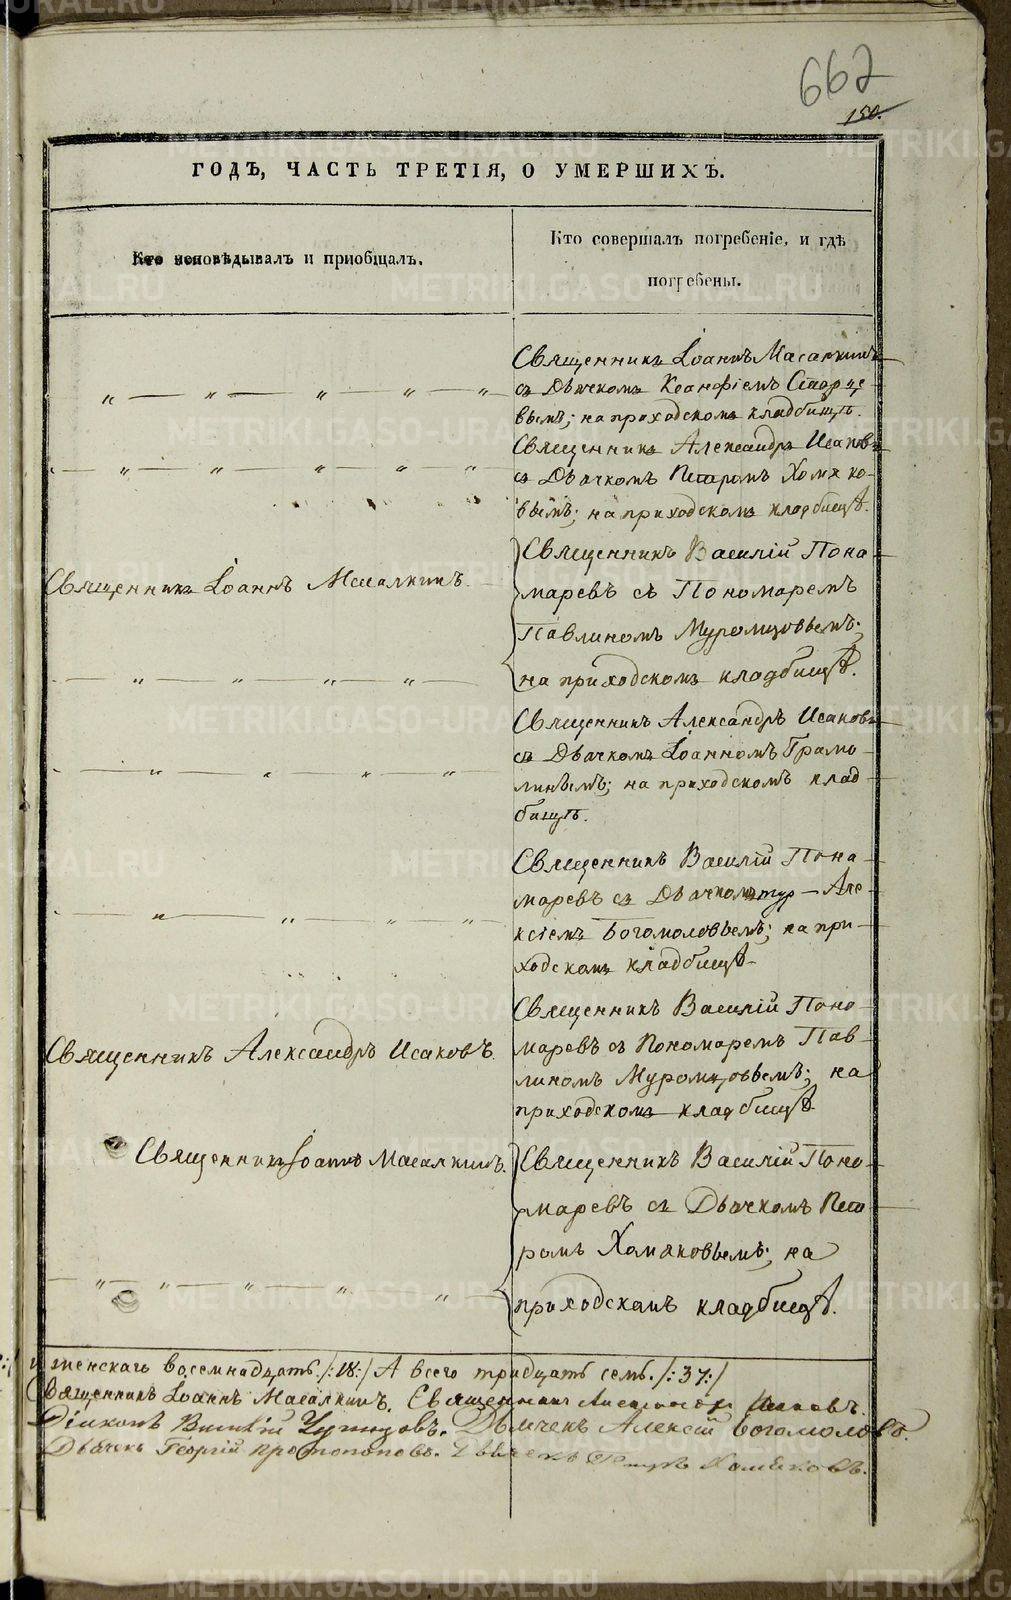 662
150.
ГОДЪ, ЧАСТЬ ТРЕТІЯ, О УМЕРШИХЪ.
Кто исповѣдывалъ и пріобщалъ.
Кто совершалъ погребеніе, и гдѣ
погребены.
Священникъ Іоаннъ Масалкинъ
съ Дьячкомъ Ксанфіемъ Старце-
вымъ; на приходскомъ кладбищѣ.
Священникъ Александръ Исаковъ
съ Дьячкомъ Петромъ Хомяко-
вымъ; на приходскомъ кладбищѣ.
Священникъ Іоаннъ Масалкинъ.
Священникъ Василій Поно-
маревъ съ Пономаремъ
Павлиномъ Муромцовымъ;
на приходскомъ кладбищѣ.
Священникъ Александръ Исаковъ
съ Дьячкомъ Іоанномъ Грамо-
линымъ; на приходскомъ клад-
бищѣ.
Священникъ Василій Поно-
маревъ съ Дьячкомъ Але-
ксіемъ Богомоловымъ; на при-
ходскомъ кладбищѣ
Священникъ Александръ Исаковъ.
Священникъ Василій Поно-
маревъ съ Пономаремъ Пав-
линомъ Муромцовымъ; на
приходскомъ кладбищѣ
Священникъ Іоаннъ Масалкинъ.
Священникъ Василій Поно-
маревъ съ Дьячкомъ Пет-
ромъ Хомяковымъ; на
приходскомъ кладбищѣ.
женскаго восемнадцать /:18:/ А всего тридцать семь. /:37:/
Священникъ Іоаннъ Масалкинъ. Священникъ Александръ Исаковъ.
Діаконъ Дьячекъ Алексій Богомоловъ.
Дьячекъ Георгій Протопоповъ. Дьячекъ Петръ Хомяковъ.
METRIKI.GASO-URAL.RU